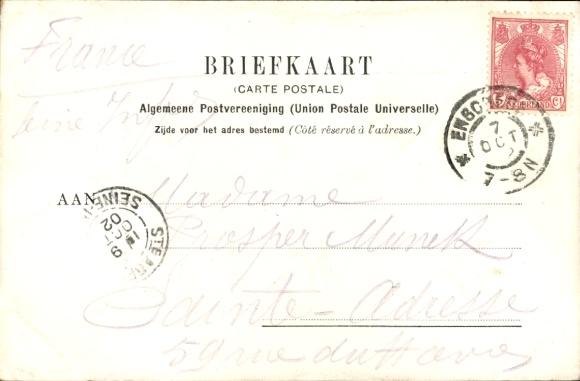 France
Seine Infre
BRIEFKAART
(CARTE POSTALE)
Algemeene Postvereeniging (Union Postale Universelle)
Zijde voor het adres bestemd (Côté réservé à l'adresse.)
NEDERLAND
7
OCT
7-8N
AAN
Madame
Prosper Munck
Sainte-Adresse
59 rue du Havre
STE ADR
SEINE-I
9
OCT
02